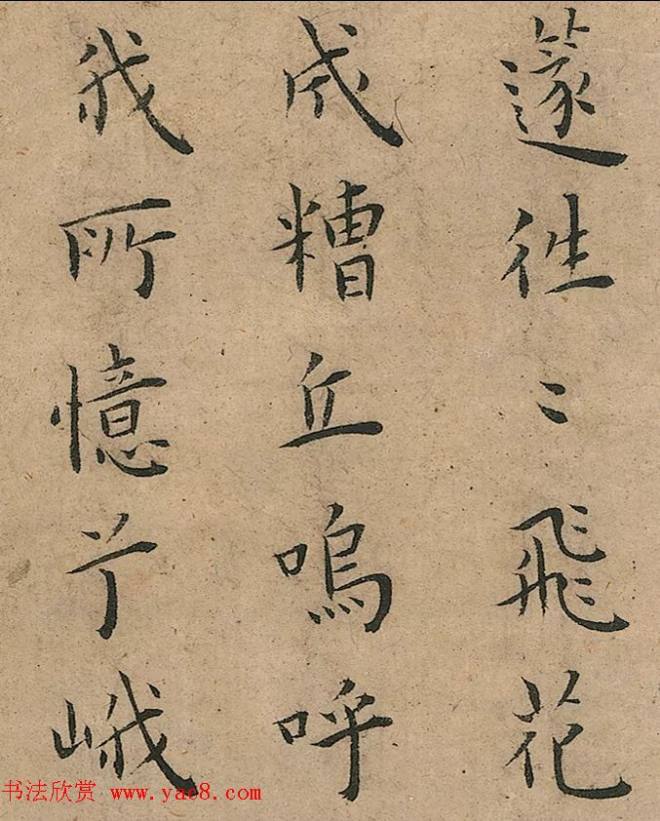 往〻飛花
成糟丘嗚呼
我所憶兮峨
书法欣赏 www.yac8.com